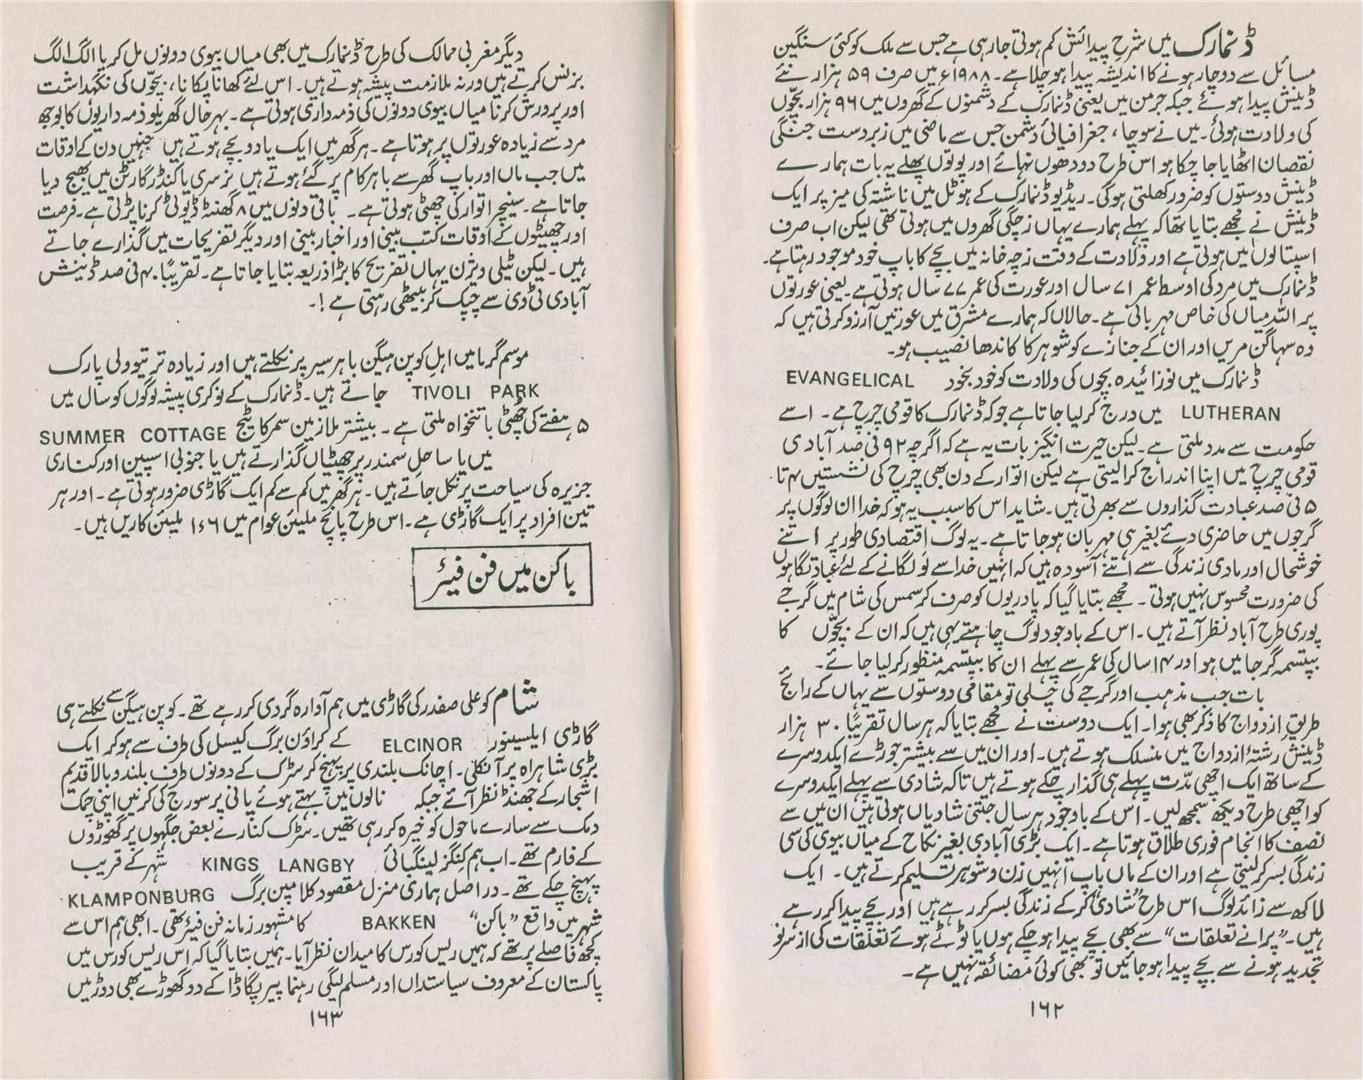 ڈنمارک میں شرح پیدائش کم ہوتی جارہی ہے جس سے ملک کو کئی سنگین
مسائل سے دوچار ہونے کا اندیشہ پیدا ہو چلا ہے۔ ۱۹۸۸ء میں صرف ۵۹ ہزار نئے
ڈینش پیدا ہوئے جبکہ جرمن میں یعنی ڈنمارک کے دشمنوں کے گھروں میں ۹۶ ہزار بچّوں
کی ولادت ہوئی۔ میں نے سوچا، جغرافیائی دشمن جس سے ماضی میں زبردست جنگی
نقصان اٹھایا جا چکا ہو اس طرح دودھوں نہائے اور پوتوں پھلے یہ بات ہمارے
ڈینش دوستوں کو ضرور کھلتی ہوگی۔ ریڈیو ڈنمارک کے ہوٹل میں ناشتہ کی میز پر ایک
ڈینش نے مجھے بتایا تھا کہ پہلے ہمارے یہاں زچگی گھروں میں ہوتی تھی لیکن اب صرف
اسپتالوں میں ہوتی ہے اور ولادت کے وقت زچہ خانہ میں بچے کا باپ خود موجود رہتا ہے۔
ڈنمارک میں مرد کی اوسط عمر ۷۱ سال اور عورت کی عمر ۷۷ سال ہوتی ہے۔ یعنی عورتوں
پر اللہ میاں کی خاص مہربانی ہے۔ حالاں کہ ہمارے مشرق میں عورتیں آرزو کرتی ہیں کہ
وہ سہاگن مریں اور ان کے جنازے کو شوہر کا کاندھا نصیب ہو۔
ڈنمارک میں نوزائیدہ بچوں کی ولادت کو خود بخود EVANGELICAL
LUTHERAN میں درج کرلیا جاتا ہے جو کہ ڈنمارک کا قومی چرچ ہے۔ اسے
حکومت سے مدد ملتی ہے۔ لیکن حیرت انگیز بات یہ ہے کہ اگرچہ ۹۲ فی صد آبادی
قومی چرچ میں اپنا اندراج کرالیتی ہے لیکن اتوار کے دن بھی چرچ کی نشستیں ۴ تا
۵ فی صد عبادت گذاروں سے بھرتی ہیں۔ شاید اس کا سبب یہ ہو کہ خدا ان لوگوں پر
گرجوں میں حاضری دئے بغیر ہی مہربان ہوجاتا ہے۔ یہ لوگ اقتصادی طور پر اتنے
خوشحال اور مادی زندگی سے اتنے آسودہ ہیں کہ انہیں خدا سے لَو لگانے کے لئے عبادتگاہوں
کی ضرورت محسوس نہیں ہوتی۔ مجھے بتایا گیا کہ پادریوں کو صرف کرسمس کی شام میں گرجے
پوری طرح آباد نظر آتے ہیں۔ اس کے باوجود لوگ چاہتے یہی ہیں کہ ان کے بچّوں کا
بپتسمہ گرجا میں ہو اور ۱۴ سال کی عمر سے پہلے ان کا بپتسمہ منظور کرلیا جائے۔
بات جب مذہب اور گرجے کی چلی تو مقامی دوستوں سے یہاں کے رائج
طریقِ ازدواج کا ذکر بھی ہوا۔ ایک دوست نے مجھے بتایا کہ ہر سال تقریباً ۳۰ ہزار
ڈینش رشتۂ ازدواج میں منسلک ہوتے ہیں۔ اور ان میں سے بیشتر جوڑے ایکدوسرے
کے ساتھ ایک اچھی مدّت پہلے ہی گذار چکے ہوتے ہیں تاکہ شادی سے پہلے ایکدوسرے
کو اچھی طرح دیکھ سمجھ لیں۔ اس کے باوجود ہر سال جتنی شادیاں ہوتی ہیں ان میں سے
نصف کا انجام فوری طلاق ہوتا ہے۔ ایک بڑی آبادی بغیر نکاح کے میاں بیوی کی سی
زندگی بسر کرلیتی ہے اور ان کے ماں باپ انہیں زن و شوہر تسلیم کرتے ہیں۔ ایک
لاکھ سے زائد لوگ اس طرح "شادی" کرکے زندگی بسر کررہے ہیں اور بچے پیدا کررہے
ہیں۔ "پرانے تعلقات" سے بھی بچے پیدا ہو چکے ہوں یا ٹوٹے ہوئے تعلقات کی ازسرنو
تجدید ہونے سے بچے پیدا ہوجائیں تو بھی کوئی مضائقہ نہیں ہے۔
۱۶۲
دیگر مغربی ممالک کی طرح ڈنمارک میں بھی میاں بیوی دونوں مل کر یا الگ الگ
بزنس کرتے ہیں ورنہ ملازمت پیشہ ہوتے ہیں۔ اس لئے کھانا پکانا، بچّوں کی نگہداشت
اور پرورش کرنا میاں بیوی دونوں کی ذمہ داری ہوتی ہے۔ بہرحال گھریلو ذمہ داریوں کا بوجھ
مرد سے زیادہ عورتوں پر ہوتا ہے۔ ہر گھر میں ایک یا دو بچے ہوتے ہیں جنہیں دن کے اوقات
میں جب ماں اور باپ گھر سے باہر کام پر گئے ہوتے ہیں نرسری یا کنڈر گارٹن میں بھیج دیا
جاتا ہے۔ سنیچر اتوار کی چھٹی ہوتی ہے۔ باقی دنوں میں ۸ گھنٹہ ڈیوٹی کرنا پڑتی ہے۔ فرصت
اور چھٹیوں کے اوقات کتب بینی اور اخبار بینی اور دیگر تفریحات میں گذارے جاتے
ہیں۔ لیکن ٹیلی ویژن یہاں تفریح کا بڑا ذریعہ بتایا جاتا ہے۔ تقریباً ۴۰ فی صد ڈینش
آبادی ٹی وی سے چپک کر بیٹھی رہتی ہے!۔
موسم گرما میں اہلِ کوپن ہیگن باہر سیر پر نکلتے ہیں اور زیادہ تر تیوولی پارک
TIVOLI PARK جاتے ہیں۔ ڈنمارک کے نوکری پیشہ لوگوں کو سال میں
۵ ہفتے کی چھٹی با تنخواہ ملتی ہے۔ بیشتر ملازمین سمر کاٹیج SUMMER COTTAGE
میں یا ساحل سمندر پر چھٹیاں گذارتے ہیں یا جنوبی اسپین اور کناری
جزیرہ کی سیاحت پر نکل جاتے ہیں۔ ہر گھر میں کم سے کم ایک گاڑی ضرور ہوتی ہے۔ اور ہر
تین افراد پر ایک گاڑی ہے۔ اس طرح پانچ ملیئن عوام میں ۱ء۶ ملیئن کاریں ہیں۔
باکن میں فن فیئر
شام کو علی صفدر کی گاڑی میں ہم آوارہ گردی کررہے تھے۔ کوپن ہیگن سے نکلتے ہی
گاڑی ایلسینور ELCINOR کے کراؤن برگ کیسل کی طرف سے ہوکر ایک
بڑی شاہراہ پر آنکلی۔ اچانک بلندی پر پہنچ کر سڑک کے دونوں طرف بلند و بالا قدیم
اشجار کے جھنڈ نظر آئے جبکہ نالوں میں بہتے ہوئے پانی پر سورج کی کرنیں اپنی چمک
دمک سے سارے ماحول کو خیرہ کر رہی تھیں۔ سڑک کنارے بعض جگہوں پر گھوڑوں
کے فارم تھے۔ اب ہم کنگز لینگبائی KINGS LANGBY شہر کے قریب
پہنچ چکے تھے۔ دراصل ہماری منزل مقصود کلامپن برگ KLAMPONBURG
شہر میں واقع "باکن" BAKKEN کا مشہور زمانہ فن فیئر تھی۔ ابھی ہم اس سے
کچھ فاصلے پر تھے کہ ہمیں ریس کورس کا میدان نظر آیا۔ ہمیں بتایا گیا کہ اس ریس کورس میں
پاکستان کے معروف سیاستداں اور مسلم لیگی رہنما پیر پگاڑا کے دو گھوڑے بھی دوڑیں
۱۶۳